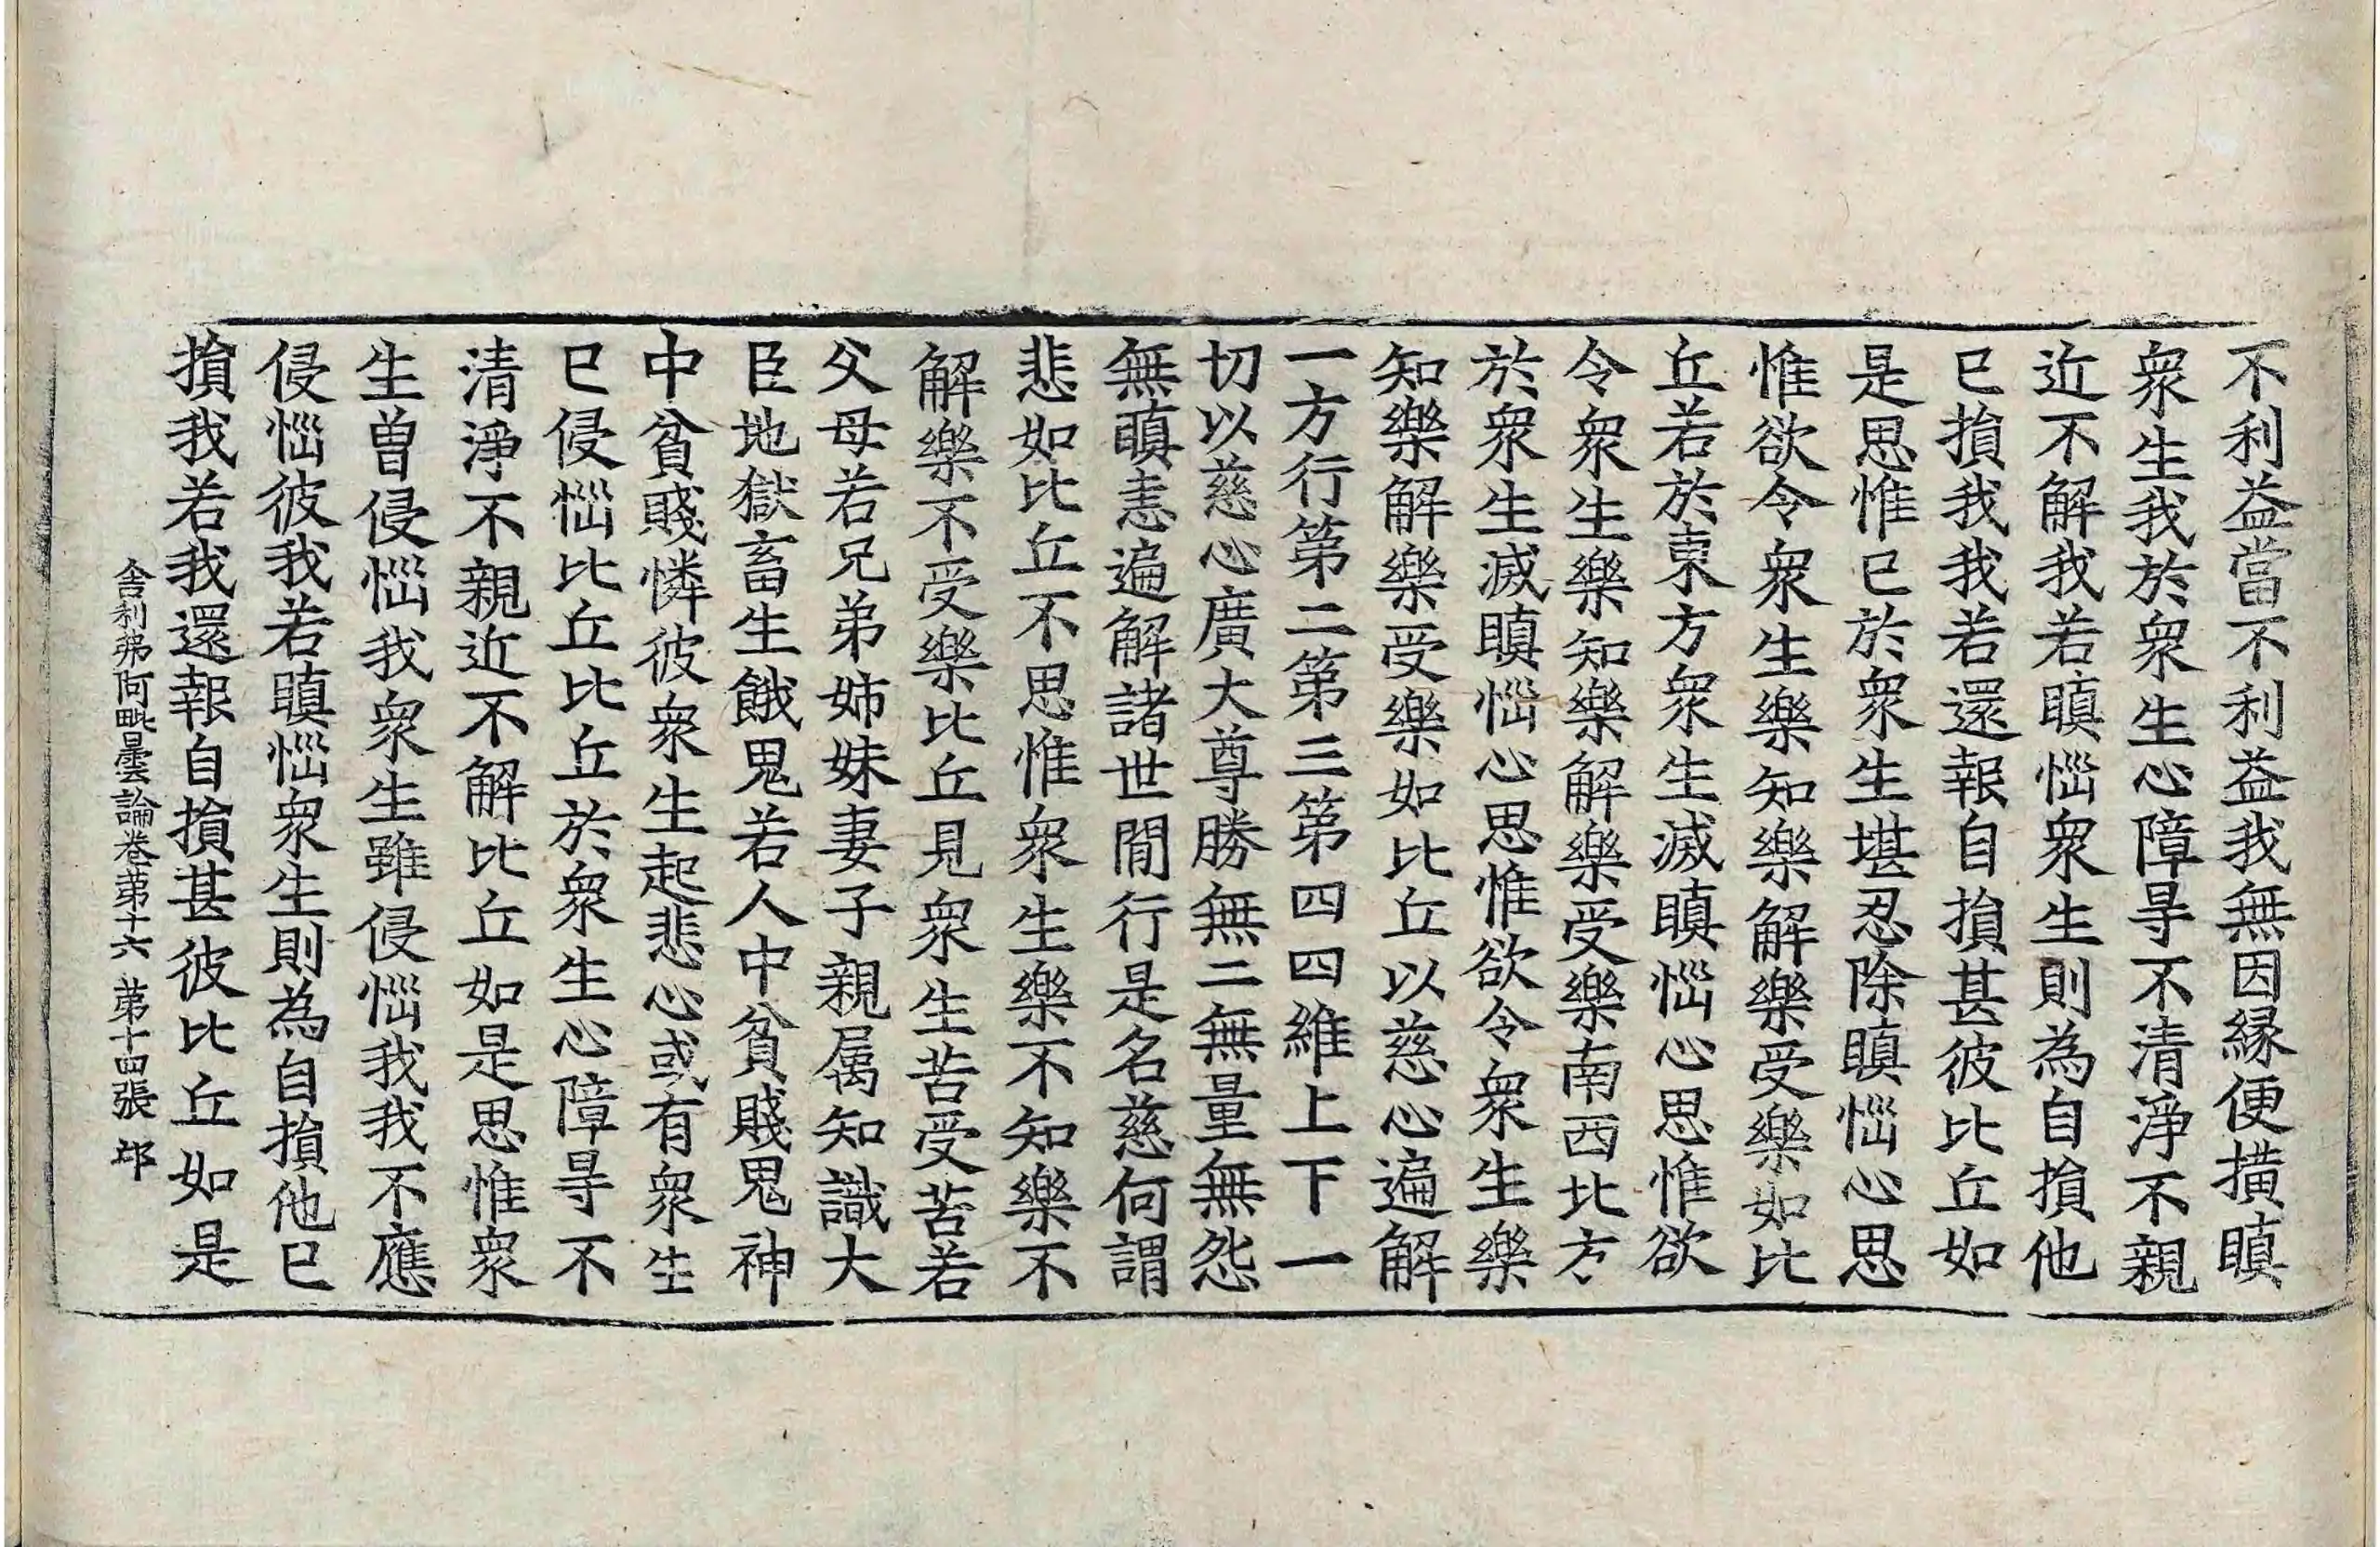 不利益當不利益我無因縁便撗瞋
衆生我於衆生心障㝵不清淨不親
近不解我若瞋惱衆生則為自損他
已損我我若還報自損甚彼比丘如
是思惟已於衆生堪忍除瞋惱心思
惟欲令衆生樂知樂解樂受樂如比
丘若於東方衆生滅瞋惱心思惟欲
令衆生樂知樂解樂受樂南西北方
於衆生滅瞋惱心思惟欲令衆生樂
知樂解樂受樂如比丘以慈心遍解
一方行第二第三第四四維上下一
切以慈心廣大尊勝無二無量無怨
無瞋恚遍解諸世間行是名慈何謂
悲如比丘不思惟衆生樂不知樂不
解樂不受樂比丘見衆生苦受苦若
父母若兄弟姊妹妻子親属知識大
臣地獄畜生餓鬼若人中貧賤鬼神
中貧賤憐彼衆生起悲心或有衆生
已侵惱比丘比丘於衆生心障㝵不
清淨不親近不解比丘如是思惟衆
生曾侵惱我衆生雖侵惱我我不應
侵惱彼我若瞋惱衆生則為自損他已
損我若我還報自損甚彼比丘如是
舍利弗阿毗曇論卷第十六 第十四張 邙